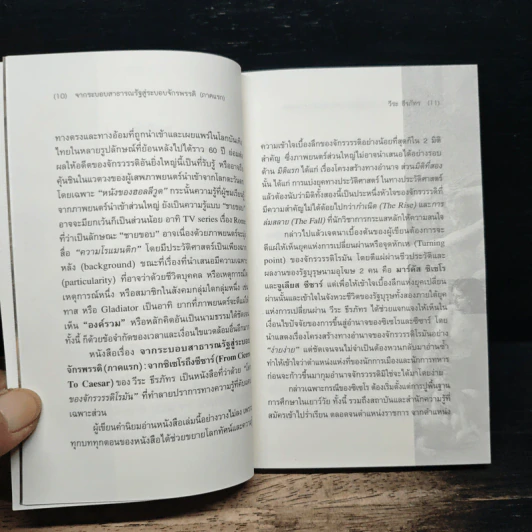 (10) จากระบอบสาธารณรัฐสู่ระบอบจักรพรรดิ (ภาคแรก)
ทางตรงและทางอ้อมที่ถูกนำเข้าและเผยแพร่ในโลกบันเทิง
ไทยในหลายรูปลักษณ์ที่ย้อนหลังไปได้ราว 60 ปี
ผลให้อดีตของจักรวรรดิอันยิ่งใหญ่นี้เป็นที่รับรู้
คุ้นชินในแวดวงของผู้เสพภาพยนตร์นำเข้าจากโลกตะวันตก
โดยเฉพาะ "หนังของฮอลลีวูด" กระนั้นความรู้ที่ผู้ชมเรียนรู้
จากภาพยนตร์นำเข้าส่วนใหญ่ ยังเป็นความรู้แบบ "ชายขอบ"
อาจจะมียกเว้นก็เป็นส่วนน้อย อาทิ TV series เรื่อง Rome
ที่ว่าเป็นลักษณะ "ชายขอบ" อาจเนื่องด้วยภาพยนตร์
สื่อ "ความโรแมนติก" โดยมีประวัติศาสตร์เป็นเพียงฉาก
หลัง (background) ขณะที่เรื่องที่นำเสนอมีความเฉพาะ
(particularity) ที่อาจว่าด้วยชีวิตบุคคล หรือเหตุการณ์
เหตุการณ์หนึ่ง หรือสมาชิกในสังคมกลุ่มใดกลุ่มหนึ่ง เช่น
ทาส หรือ Gladiator เป็นอาทิ ยากที่ภาพยนตร์จะสื่อให้
เห็น "องค์รวม" หรือหลักคิดอันเป็นนามธรรมได้ชัดเจน
ทั้งนี้ ก็ด้วยข้อจำกัดของเวลาและเงื่อนไขแวดล้อมอื่นอีก
หนังสือเรื่อง จากระบอบสาธารณรัฐสู่ระบอบ
จักรพรรดิ (ภาคแรก) : จากซิเซโรถึงซีซาร์ (From Cicero
To Caesar) ของ วีระ ธีรภัทร เป็นหนังสือที่ว่าด้วย
ของจักรวรรดิโรมัน" ที่ทำลายปราการทางความรู้ที่คับแคบ
เฉพาะส่วน
ผู้เขียนคำนิยมอ่านหนังสือเล่มนี้อย่างวางไม่ลง เพราะ
ทุกบททุกตอนของหนังสือได้ช่วยขยายโลกทัศน์และความรู้
วีระ ธีรภัทร (11)
ความเข้าใจเบื้องลึกของจักรวรรดิอย่างน้อยที่สุดก็ใน 2 มิติ
สำคัญ ซึ่งภาพยนตร์ส่วนใหญ่ไม่อาจนำเสนอได้อย่างรอบ
ด้าน มิติแรก ได้แก่ เรื่องโครงสร้างทางอำนาจ ส่วนมิติที่สอง
นั้น ได้แก่ การแบ่งยุคทางประวัติศาสตร์ ในทางประวัติศาสตร์
แล้วต้องนับว่ามิติทั้งสองนี้เป็นประหนึ่งหัวใจของจักรวรรดิที่
มีความสำคัญไม่ได้ด้อยไปกว่ากำเนิด (The Rise) และการ
ล่มสลาย (The Fall) ที่นักวิชาการกระแสหลักให้ความสนใจ
กล่าวไปแล้วเจตนาเบื้องต้นของผู้เขียนต้องการจะ
ตีแผ่ให้เห็นยุคแห่งการเปลี่ยนผ่านหรือจุดหักเห (Turning
point) ของจักรวรรดิโรมัน โดยตีแผ่ผ่านชีวประวัติและ
ผลงานของรัฐบุรุษนามอุโฆษ 2 คน คือ มาร์คัส ซิเซโร
และจูเลียส ซีซาร์ แต่เพื่อให้เข้าใจเบื้องลึกแห่งยุคเปลี่ยน
ผ่านนั้นและเข้าใจในจังหวะชีวิตของรัฐบุรุษทั้งสองภายใต้ยุค
แห่งการเปลี่ยนผ่าน วีระ ธีรภัทร ได้ช่วยแจกแจงให้เห็นใน
เงื่อนไขปัจจัยของการขึ้นสู่อำนาจของซิเซโรและซีซาร์ โดย
นำแสดงเรื่องโครงสร้างทางอำนาจของจักรวรรดิโรมันอย่าง
"ง่ายง่าย" แต่ชัดเจนจนไม่จำเป็นต้องหวนกลับมาอ่านซ้ำ
ทำให้เข้าใจว่าตำแหน่งแห่งที่ของนักการเมืองและนักการทหาร
ก่อนจะก้าวขึ้นมากุมอำนาจจักรวรรดิมิใช่จะได้มาโดยง่าย
กล่าวเฉพาะกรณีของซิเซโร ต้องเริ่มตั้งแต่การปูพื้นฐาน
การศึกษาในเยาว์วัย ทั้งนี้ รวมถึงสถาบันและสำนักความรู้ที่
สมัครเข้าไปร่ำเรียน ตลอดจนตำแหน่งราชการ จากตำแหน่ง